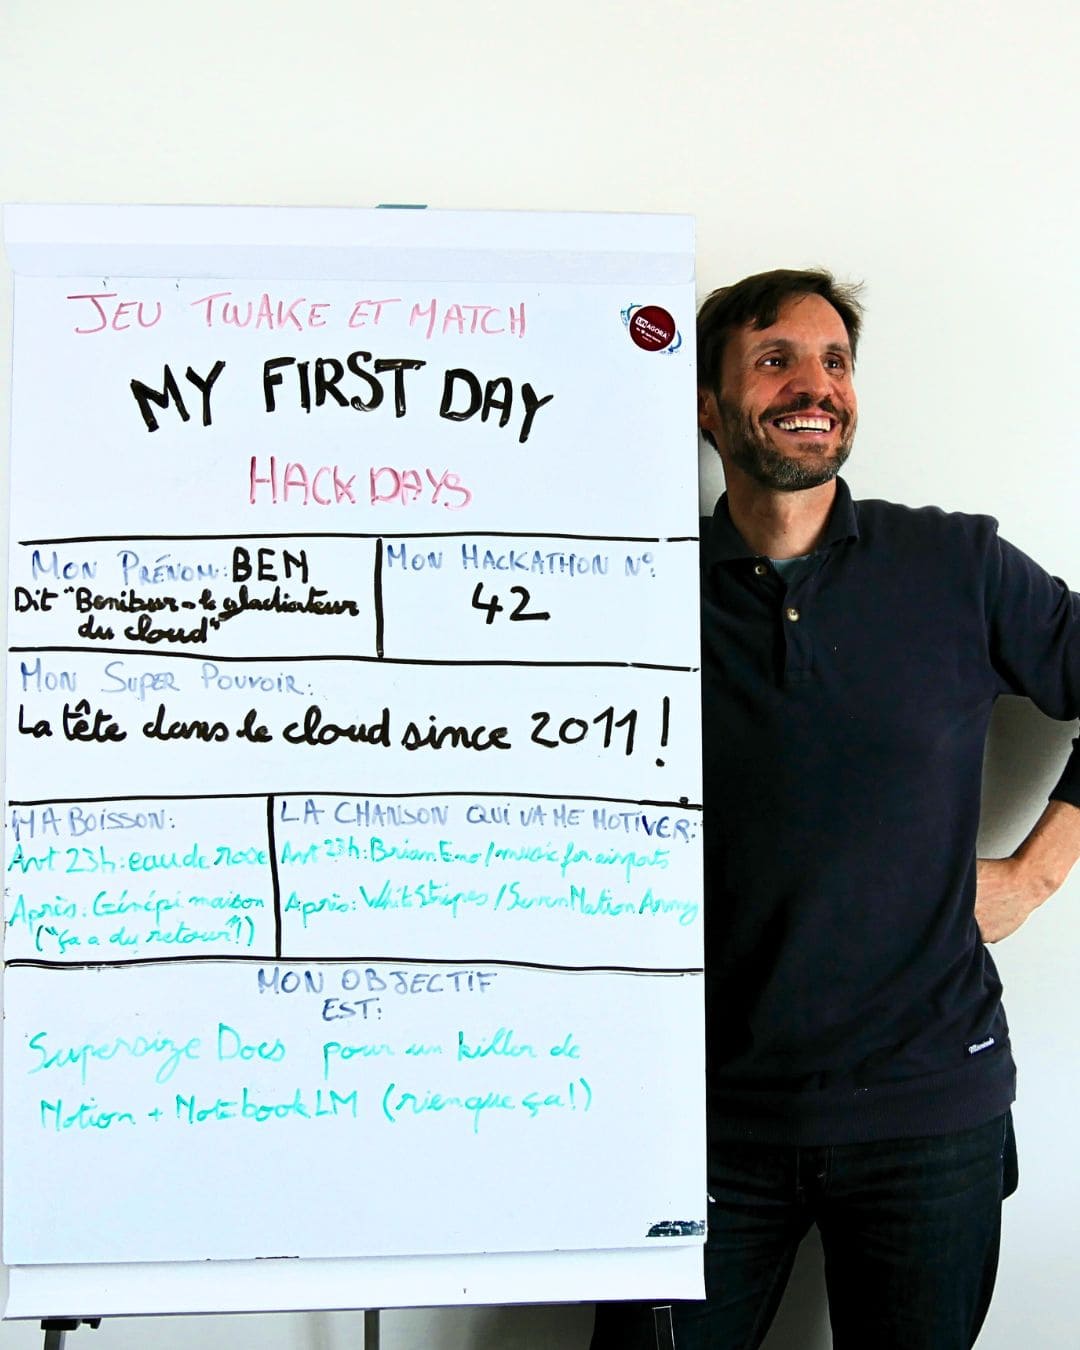 JEU TWAKE ET MATCH
LINAGORA
MY FIRST DAY
HACK DAYS
MON PRÉNOM: BEN
Dit "Benibur - le gladiateur
du cloud"
MON HACKATHON N°:
42
MON SUPER POUVOIR:
La tête dans le cloud since 2011 !
MA BOISSON:
Avt 23h: eau de rose
Après: Génépi maison
("ça a du retour"!)
LA CHANSON QUI VA ME MOTIVER:
Avt 23h: Brian Eno / music for airports
Après: Whit Stripes / Seven Nation Army
MON OBJECTIF
EST:
Supersize Docs pour un killer de
Notion + NotebookLM (rien que ça!)